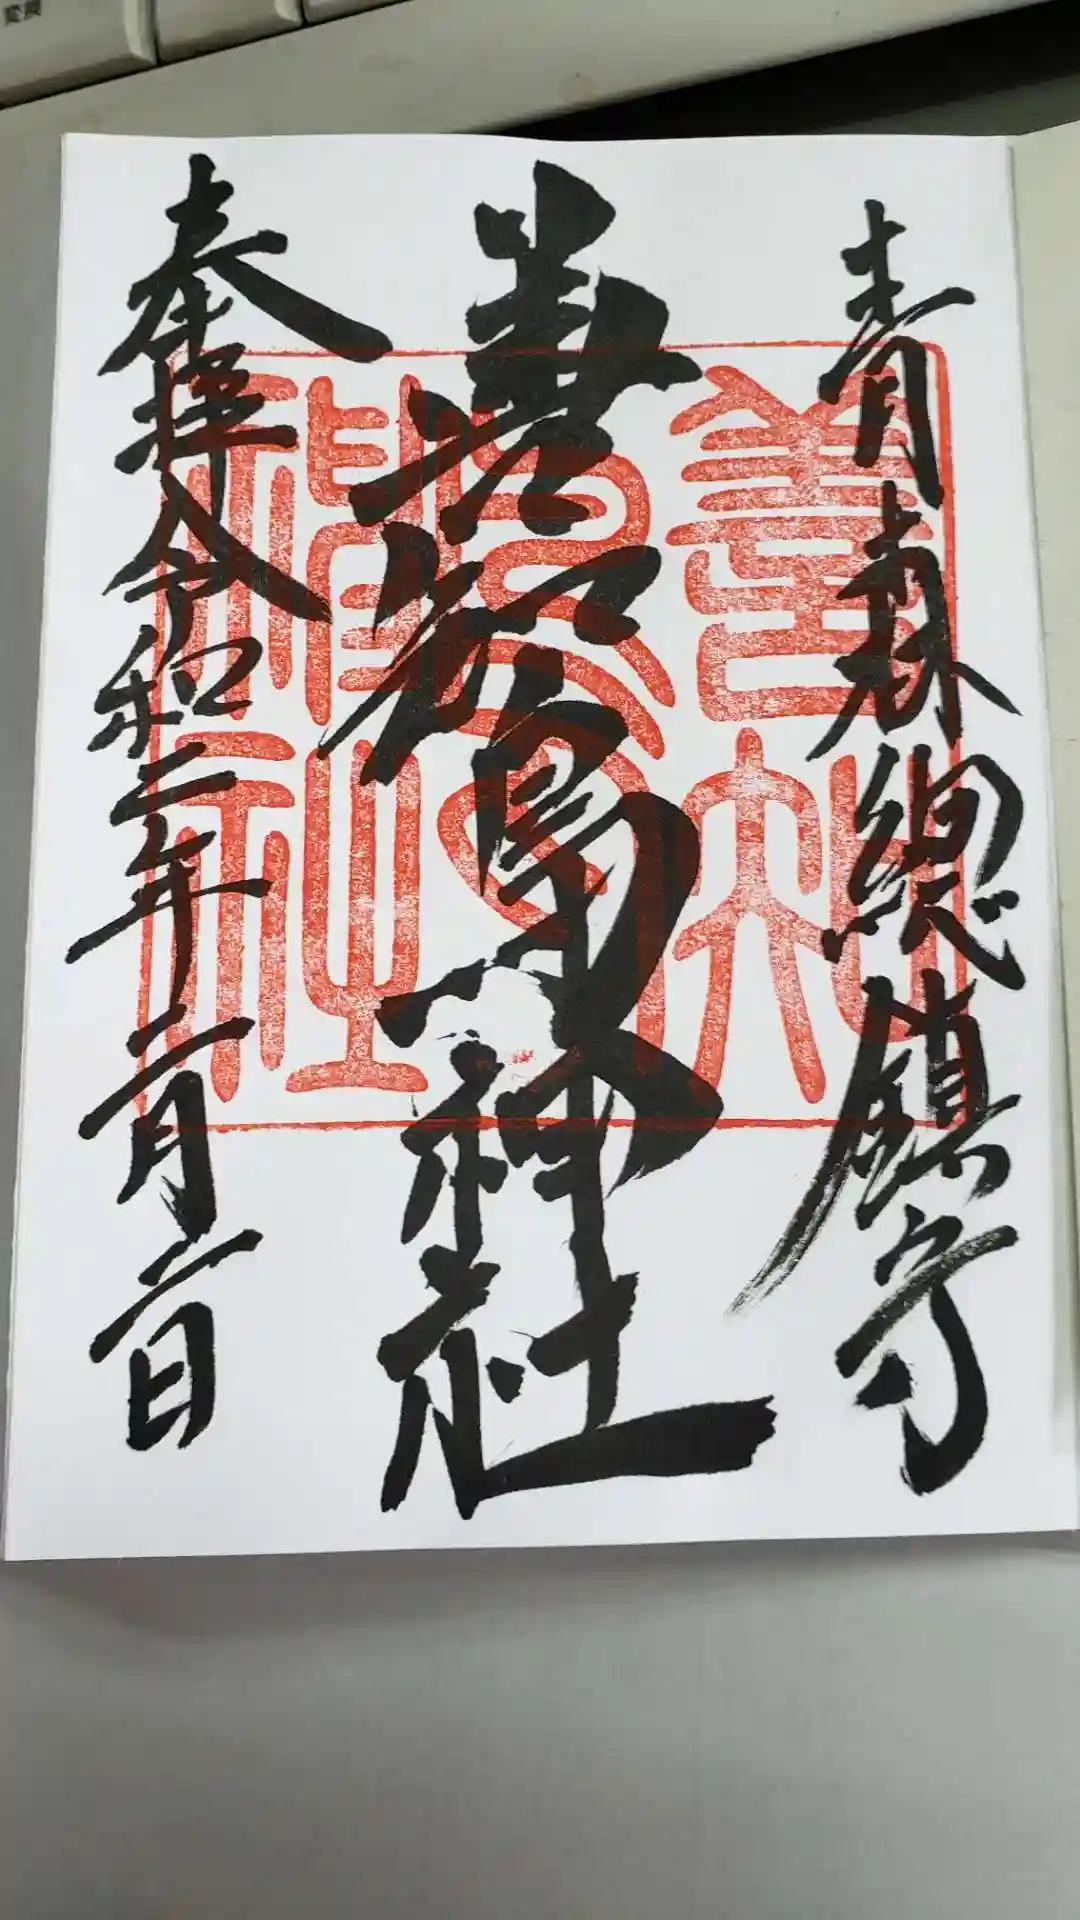 変換
青森總鎮守
善知鳥神社
奉拝令和二年二月二日
善知鳥神社